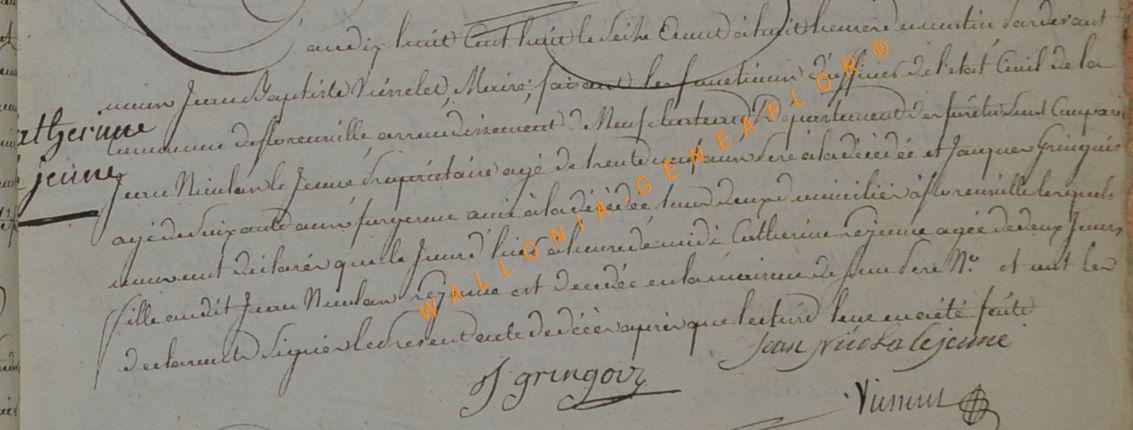 an dix huit cent huit le seize à huit heure du matin pardevant
nous Jean Baptiste Maire faisant les fonctions d'officier de l'état Civil de la
Catherine
commune de florenville arrondissement de Neufchateau Département des forêts sont Comparu
le jeune
Jean Nicolas le Jeune propriétaire agé de trente ans père à la décédée et Jacques Gringoir
agé de soixante ans forgeron ami à la décédée tous deux domiciliés à florenville lesquels
nous ont déclarés que le Jour d'hier à heure de midi Catherine lejeune agée de deux Jours
fille audit Jean Nicolas lejeune est décédée en la maison de son père et ont les
declarants signés le present acte de décès après que lecture leur en a été faite
Jean Nicola lejeune
J gringoir
WALLONIA-GENEAFLOR®